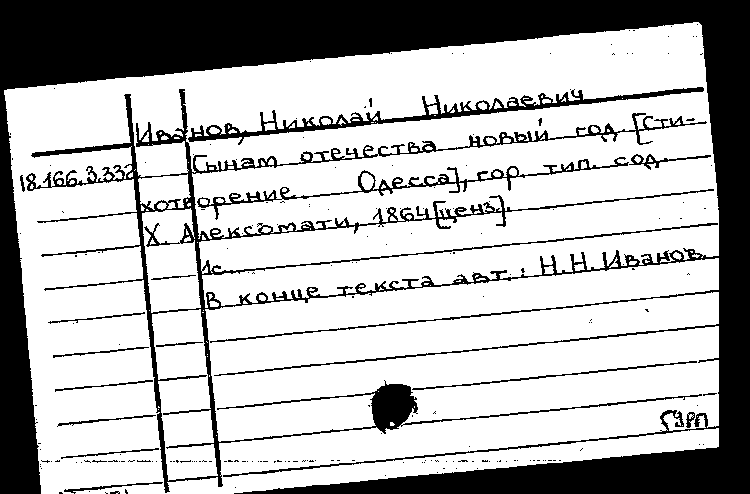 Иванов, Николай Николаевич
18.166.3.332 Сынам отечества новый год. [Сти-
хотворение. Одесса], гор. тип. сод.
Х. Алексомати, 1864 [ценз].
1с.
В конце текста авт.: Н.Н. Иванов.